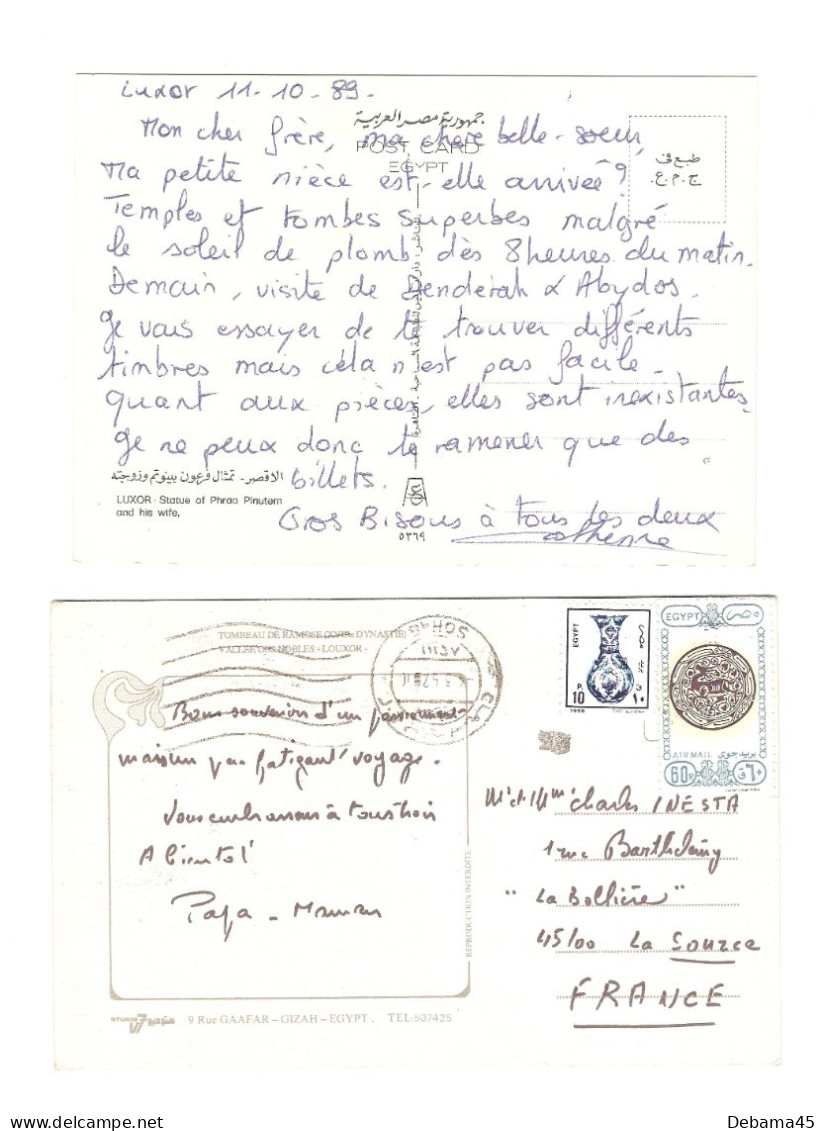 Luxor 11-10-89-
جمهورية مصر العربية
POST CARD
EGYPT
طبع فى
ج.م.ع.
Mon cher frère, ma chère belle-soeur,
Ma petite nièce est-elle arrivée?
Temples et tombes superbes malgré
le soleil de plomb dès 8 heures du matin.
Demain, visite de Denderah & Abydos.
Je vais essayer de te trouver différents
timbres mais cela n'est pas facile.
Quant aux pièces, elles sont inexistantes.
Je ne peux donc te ramener que des
billets.
الاقصر - تمثال فرعون بينوتم وزوجته
LUXOR: Statue of Phrao Pinutem
and his wife,
Gros Bisous à tous les deux
٥٣٦٩
TOMBEAU DE RAMOSE DYNASTIE)
VALLEE DES NOBLES - LOUXOR -
EGYPT
P.
10
١٠
EGYPT مصر
AIR MAIL بريد جوى
60P ٦٠ق
Bons souvenirs d'un passionnant
mais un peu fatigant voyage.
Vous embrassons à tous trois
A bientôt
Papa - Maman
Mr et Mme Charles INESTA
1 rue Barthélémy
"La Bollière"
45100 La Source
FRANCE
REPRODUCTION INTERDITE
STUDIO 7 ستوديو
9 Rue GAAFAR - GIZAH - EGYPT. TEL: 537425
Debama45